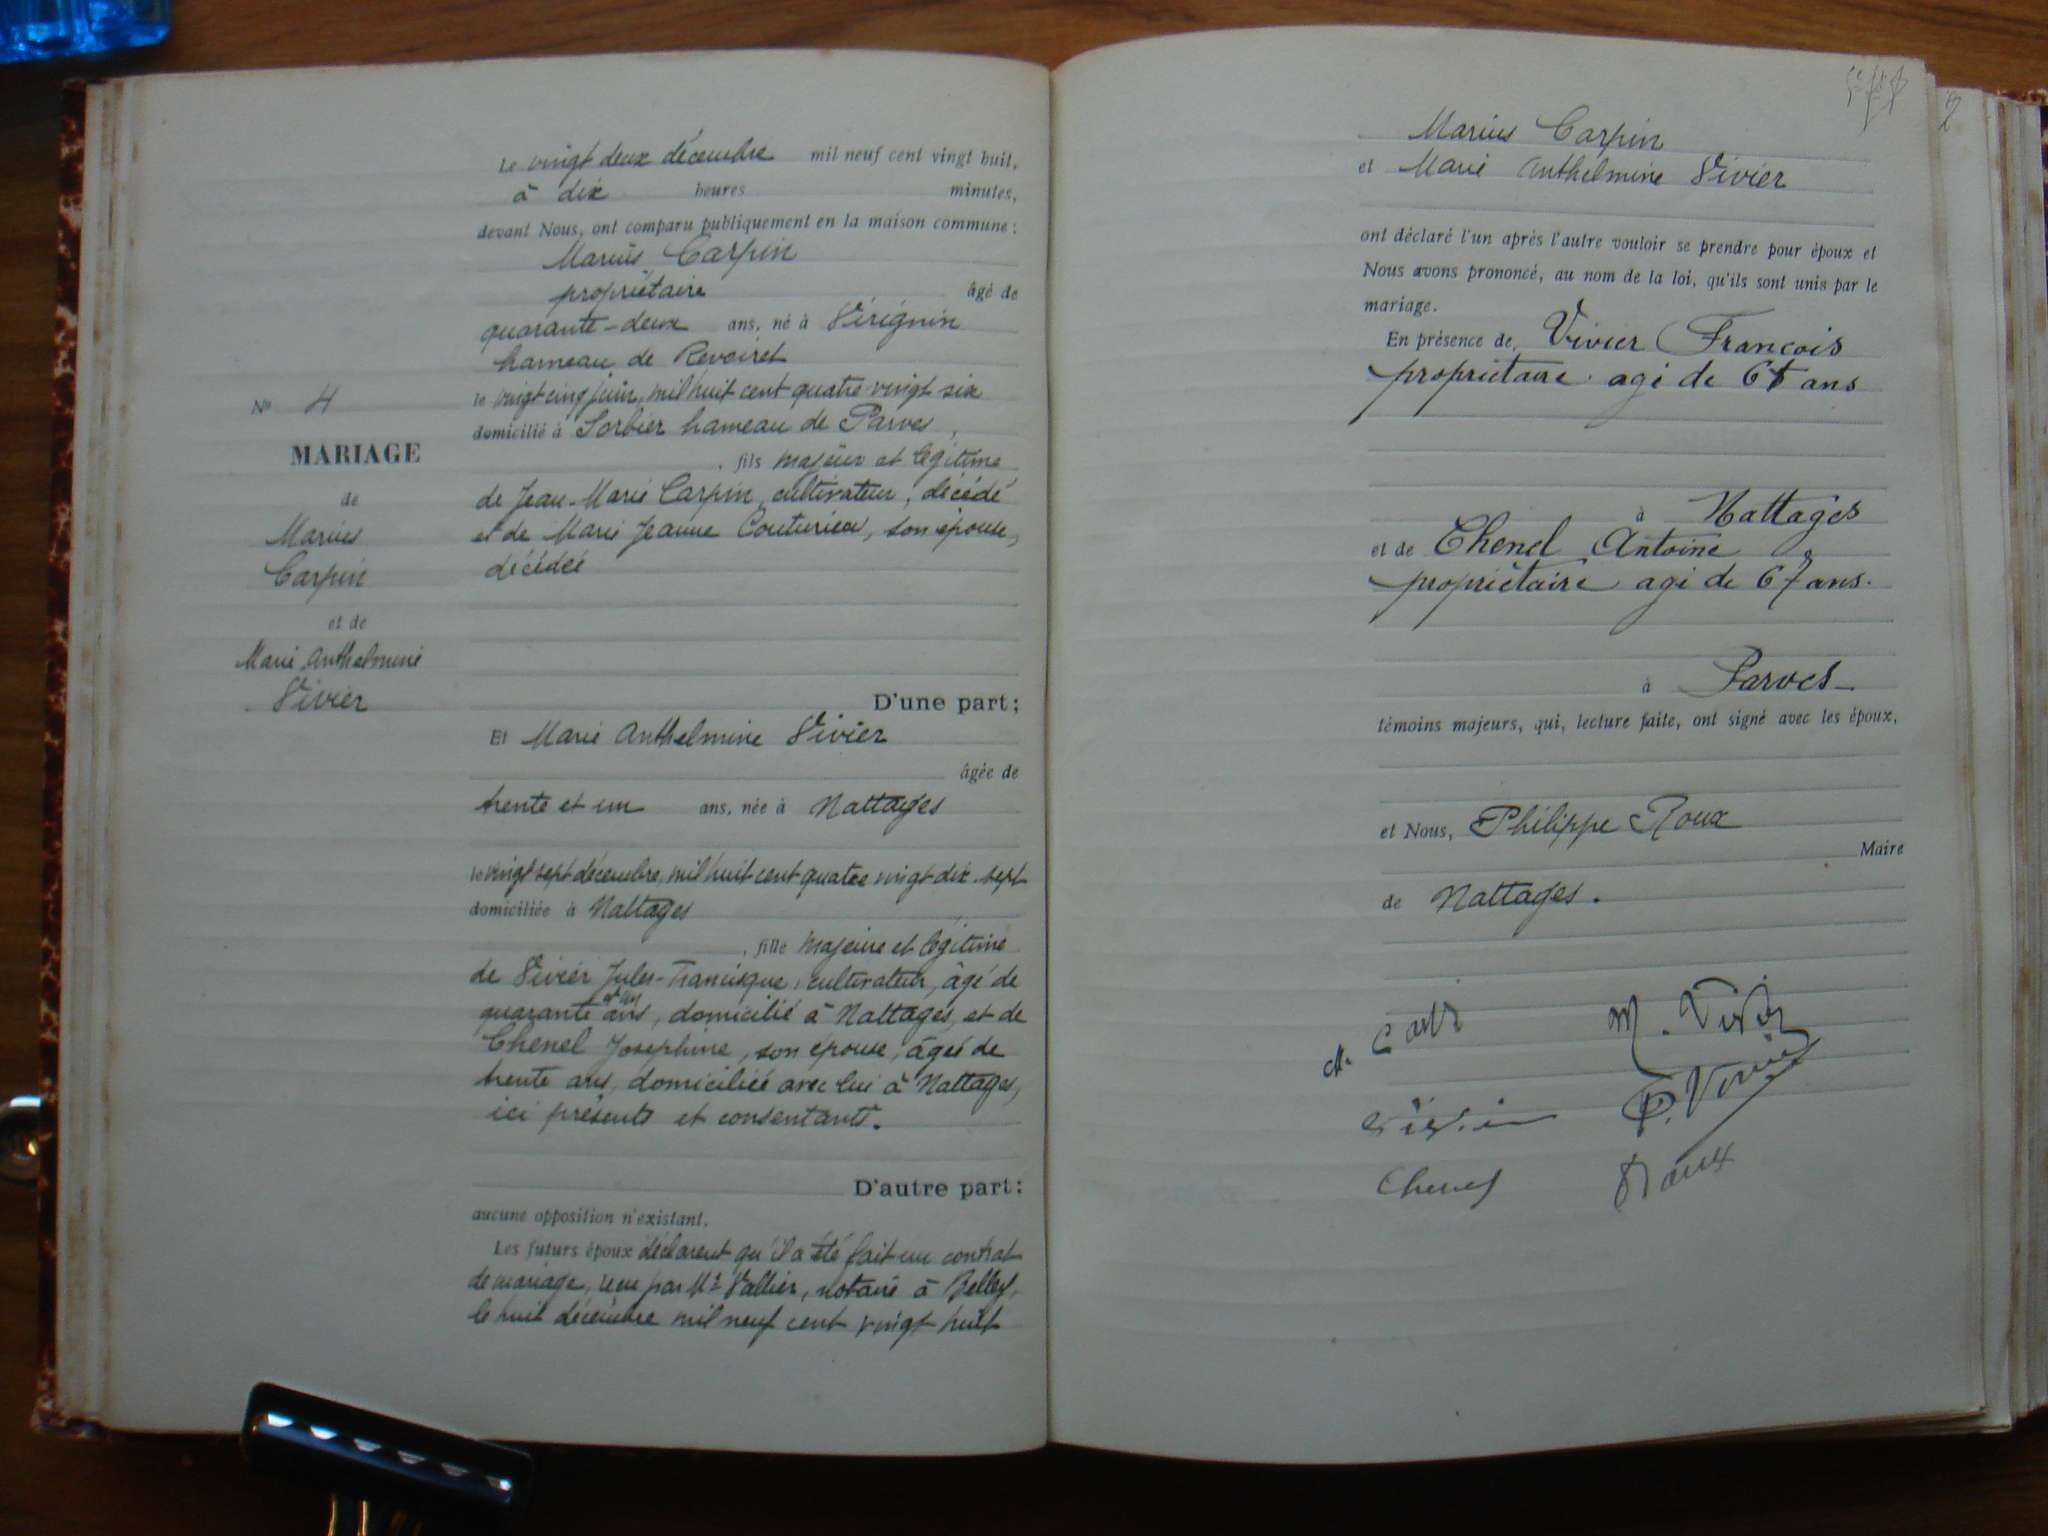 Le vingt deux décembre mil neuf cent vingt huit,
à dix heures minutes,
devant Nous, ont comparu publiquement en la maison commune :
Marius Carpin
propriétaire âgé de
quarante-deux ans, né à Virignin
hameau de Revoiret
le vingt cinq juin, mil huit cent quatre-vingt six
domicilié à Sorbier hameau de Parves,
, fils majeur et légitime
de Jean-Marie Carpin, cultivateur, décédé
et de Marie Jeanne Couturier, son épouse,
décédée
D'une part ;
Et Marie Anthelmine Vivier
âgée de
trente et un ans, née à Nattages
le vingt sept décembre, mil huit cent quatre vingt dix-sept
domiciliée à Nattages
, fille majeure et légitime
de Vivier Jules-Francisque, cultivateur, âgé de
et un
quarante ans, domicilié à Nattages, et de
Chenel Josephine, son épouse, âgée de
trente ans, domiciliée avec lui à Nattages,
ici présents et consentants.
D'autre part :
aucune opposition n'existant.
Les futurs époux déclarent qu'il a été fait un contrat
de mariage, reçu par Me Vallier, notaire à Belley,
le huit décembre mil neuf cent vingt huit
No 4
MARIAGE
de
Marius
Carpin
et de
Marie Anthelmine
Vivier
Marius Carpin
et Marie Anthelmine Vivier
ont déclaré l'un après l'autre vouloir se prendre pour époux et
Nous avons prononcé, au nom de la loi, qu'ils sont unis par le
mariage.
En présence de Vivier François
propriétaire agé de ans
à Nattages
et de Chenel Antoine
propriétaire agé de 67 ans.
à Parves
témoins majeurs, qui, lecture faite, ont signé avec les époux,
et Nous, Philippe Roux
Maire
de Nattages.
M. Vivier
Chenel
Roux